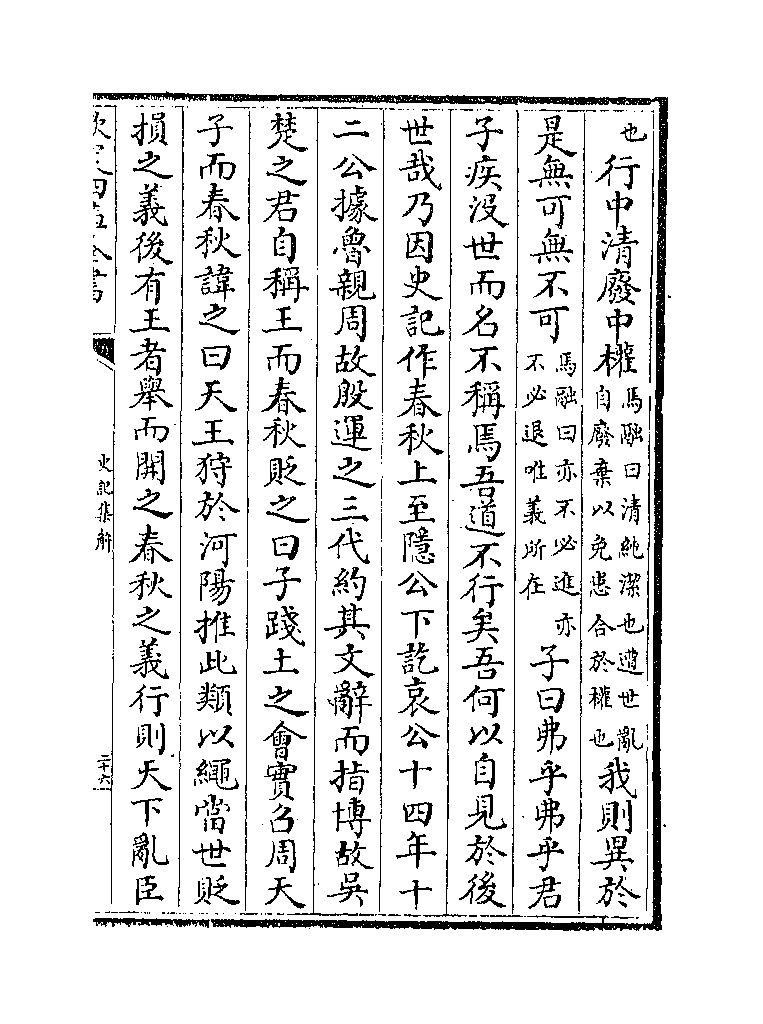 也行中清廢中權馬融曰清純潔也遭世亂自廢棄以免患合於權也我則異於
是無可無不可馬融曰亦不必進亦不必退唯義所在子曰弗乎弗乎君
子疾沒世而名不稱焉吾道不行矣吾何以自見於後
世哉乃因史記作春秋上至隱公下訖哀公十四年十
二公據魯親周故殷運之三代約其文辭而指博故吳
楚之君自稱王而春秋貶之曰子踐土之會實召周天
子而春秋諱之曰天王狩於河陽推此類以繩當世貶
損之義後有王者舉而開之春秋之義行則天下亂臣
欽定四庫全書
史記集解
二十六